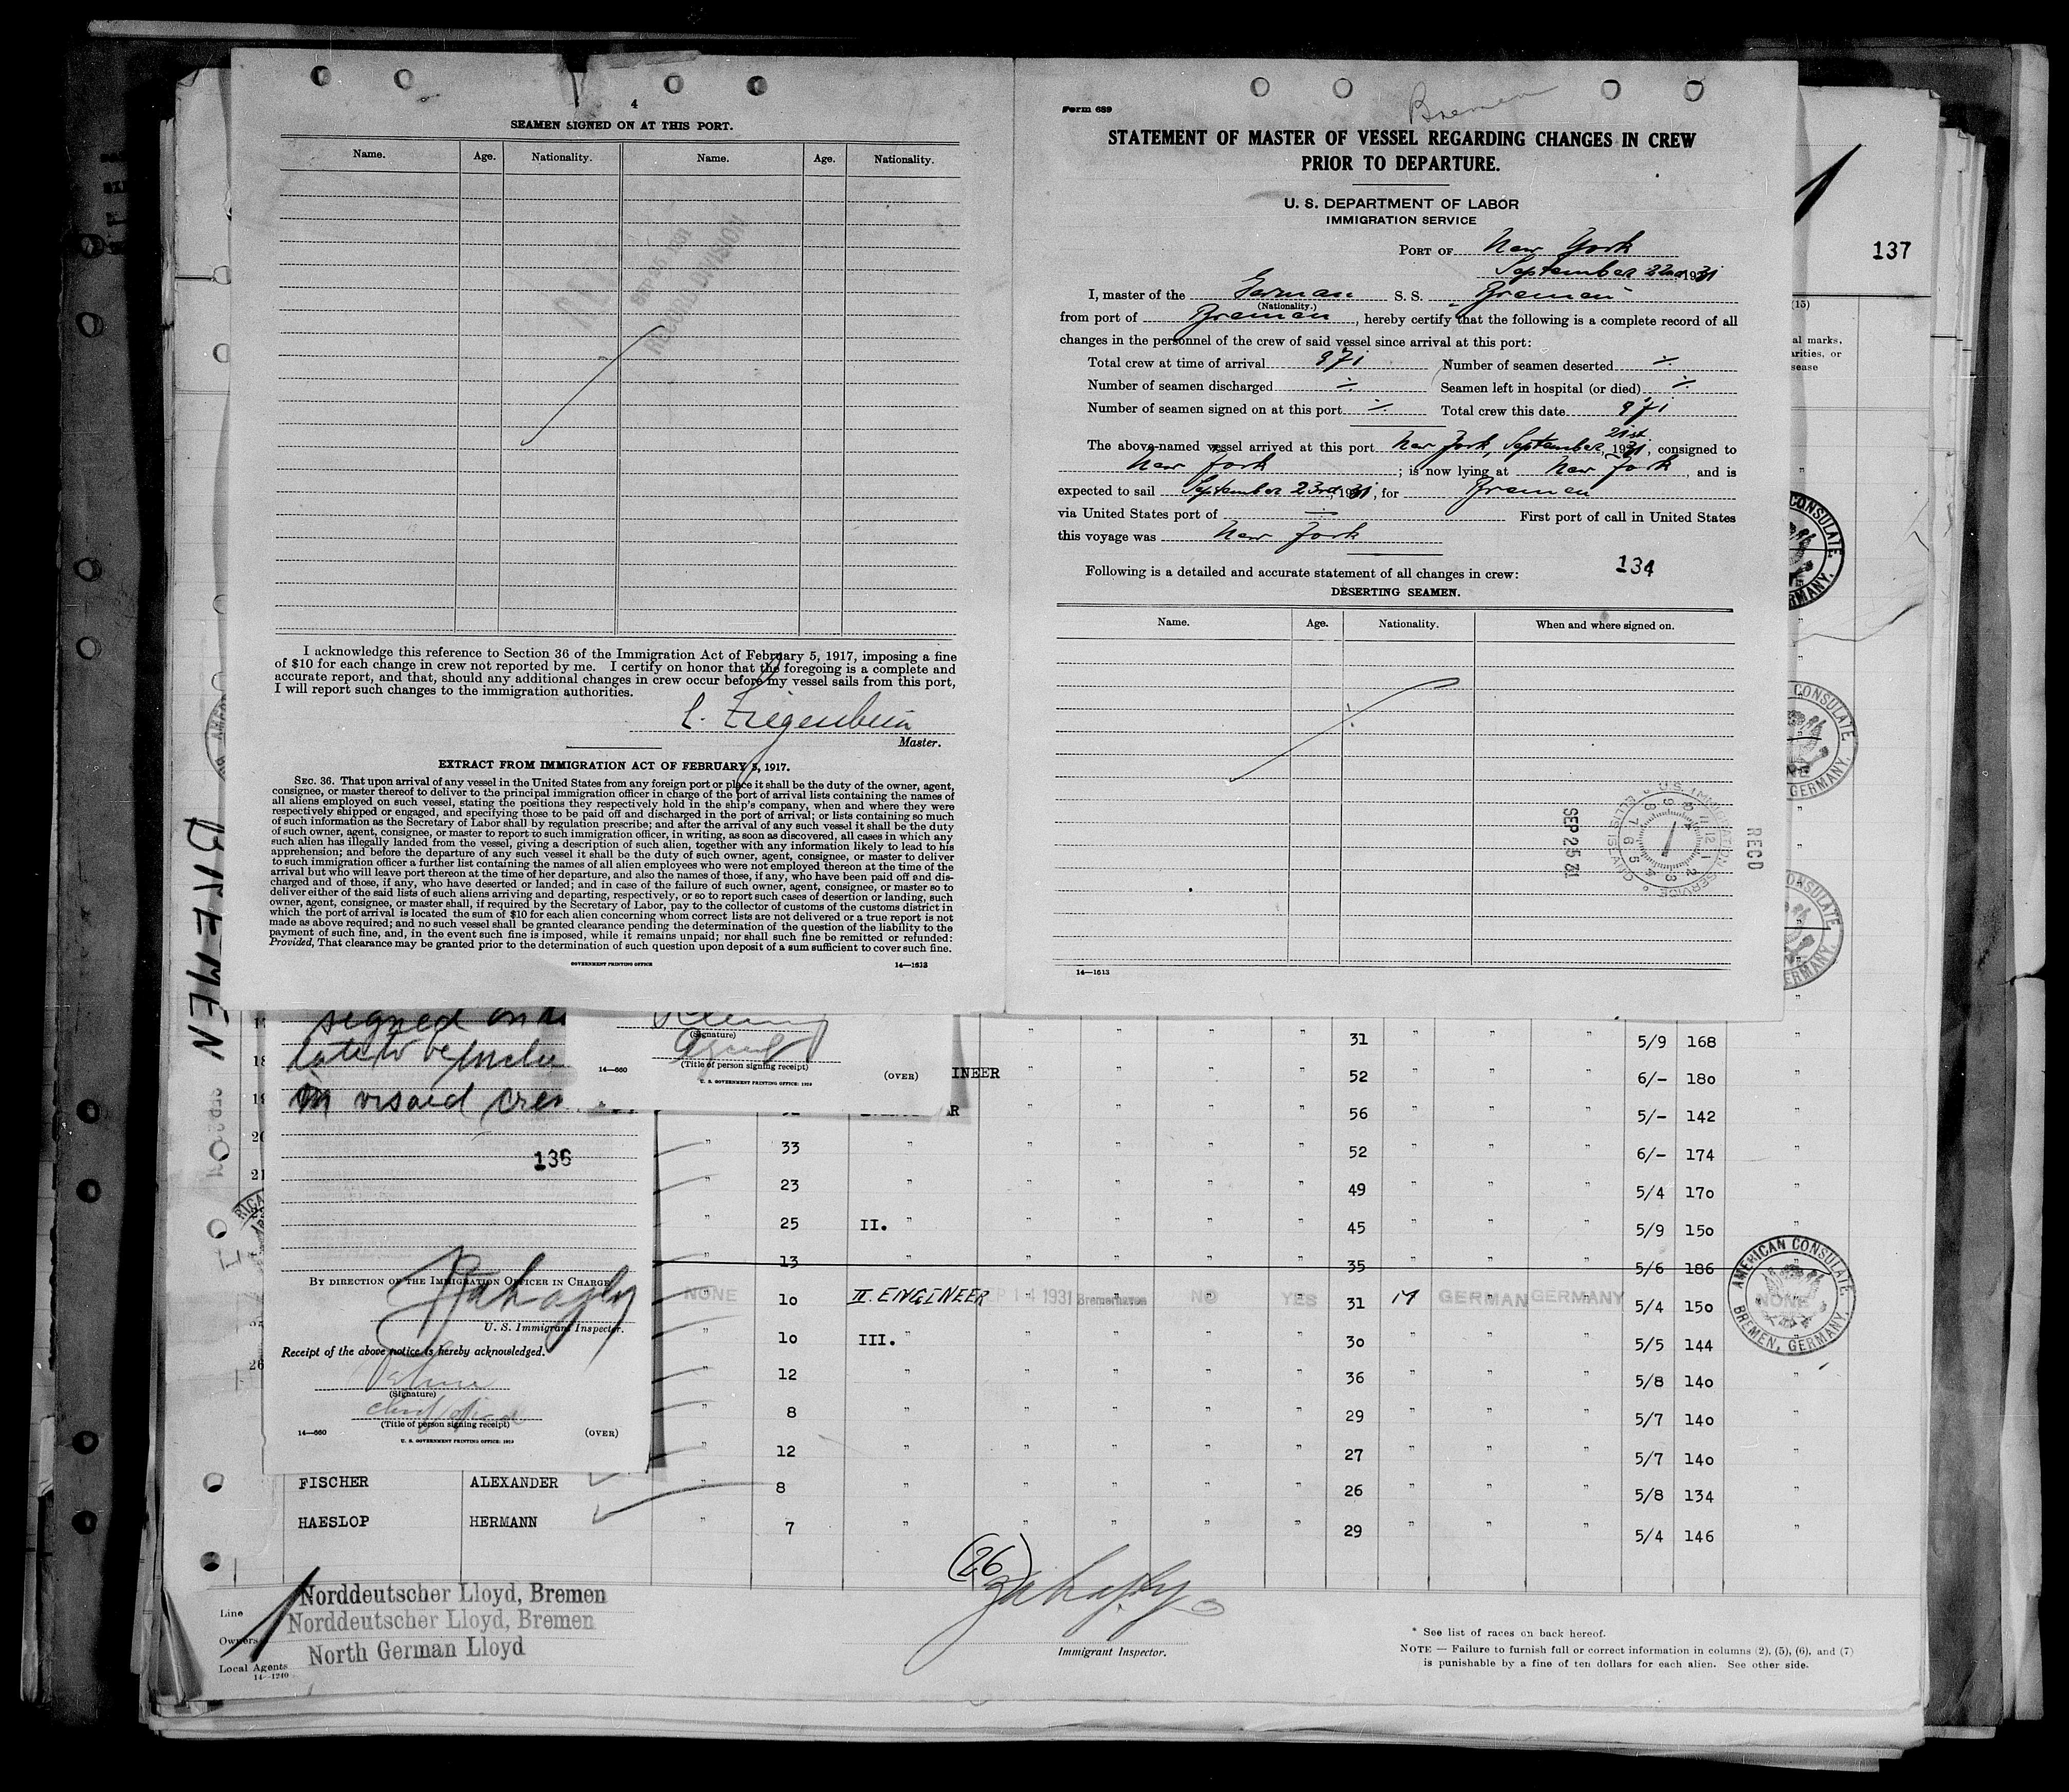 4
SEAMEN SIGNED ON AT THIS PORT.
Name. Age. Nationality. Name. Age. Nationality.
SEP 25 1931
RECORD DIVISION
I acknowledge this reference to Section 36 of the Immigration Act of February 5, 1917, imposing a fine
of $10 for each change in crew not reported by me. I certify on honor that the foregoing is a complete and
accurate report, and that, should any additional changes in crew occur before my vessel sails from this port,
I will report such changes to the immigration authorities.
L. Ziegenbein
Master.
EXTRACT FROM IMMIGRATION ACT OF FEBRUARY 5, 1917.
SEC. 36. That upon arrival of any vessel in the United States from any foreign port or place it shall be the duty of the owner, agent,
consignee, or master thereof to deliver to the principal immigration officer in charge of the port of arrival lists containing the names of
all aliens employed on such vessel, stating the positions they respectively hold in the ship's company, when and where they were
respectively shipped or engaged, and specifying those to be paid off and discharged in the port of arrival; or lists containing so much
of such information as the Secretary of Labor shall by regulation prescribe; and after the arrival of any such vessel it shall be the duty
of such owner, agent, consignee, or master to report to such immigration officer, in writing, as soon as discovered, all cases in which any
such alien has illegally landed from the vessel, giving a description of such alien, together with any information likely to lead to his
apprehension; and before the departure of any such vessel it shall be the duty of such owner, agent, consignee, or master to deliver
to such immigration officer a further list containing the names of all alien employees who were not employed thereon at the time of the
arrival but who will leave port thereon at the time of her departure, and also the names of those, if any, who have been paid off and dis-
charged and of those, if any, who have deserted or landed; and in case of the failure of such owner, agent, consignee, or master so to
deliver either of the said lists of such aliens arriving and departing, respectively, or so to report such cases of desertion or landing, such
owner, agent, consignee, or master shall, if required by the Secretary of Labor, pay to the collector of customs of the customs district in
which the port of arrival is located the sum of $10 for each alien concerning whom correct lists are not delivered or a true report is not
made as above required; and no such vessel shall be granted clearance pending the determination of the question of the liability to the
payment of such fine, and, in the event such fine is imposed, while it remains unpaid; nor shall such fine be remitted or refunded:
Provided, That clearance may be granted prior to the determination of such question upon deposit of a sum sufficient to cover such fine.
GOVERNMENT PRINTING OFFICE 14—1613
Form 689
Bremen
STATEMENT OF MASTER OF VESSEL REGARDING CHANGES IN CREW
PRIOR TO DEPARTURE.
U. S. DEPARTMENT OF LABOR
IMMIGRATION SERVICE
PORT OF New York
September 22nd 1931
I, master of the German S. S. Bremen
(Nationality.)
from port of Bremen, hereby certify that the following is a complete record of all
changes in the personnel of the crew of said vessel since arrival at this port:
Total crew at time of arrival 971 Number of seamen deserted ÷
Number of seamen discharged ÷ Seamen left in hospital (or died) ÷
Number of seamen signed on at this port ÷ Total crew this date 971
The above-named vessel arrived at this port New York, September 21st 1931, consigned to
New York; is now lying at New York and is
expected to sail September 23rd, 1931, for Bremen
via United States port of ÷ First port of call in United States
this voyage was New York
Following is a detailed and accurate statement of all changes in crew: 134
DESERTING SEAMEN.
Name. Age. Nationality. When and where signed on.
SEP 25 31
U. S. IMMIGRATION SERVICE
ELLIS ISLAND
RECD
14—1613
137
(15)
al marks,
arities, or
sease
CONSULATE,
GERMANY.
CONSULATE,
GERMANY.
CONSULATE,
GERMANY.
BREMEN
signed on
late to be
in visaed crew
(Signature)
(Title of person signing receipt)
14—660 (OVER)
136
BY DIRECTION OF THE IMMIGRATION OFFICER IN CHARGE
U. S. Immigrant Inspector.
Receipt of the above notice is hereby acknowledged.
(Signature)
chief officer
(Title of person signing receipt)
14—660 (OVER)
U. S. GOVERNMENT PRINTING OFFICE
31 5/9 168 "
INEER " " " " " 52 " " " 6/- 180 "
" " " " " 56 " " " 5/- 142 "
" 33 " " " " " " 52 " " " 6/- 174 "
" 23 " " " " " " 49 " " " 5/4 170 "
" 25 II. " " " " " " 45 " " " 5/9 150 "
" 13 " " " " " " 35 " " " 5/6 186
NONE 10 II. ENGINEER SEP 14 1931 Bremerhaven " NO YES 31 M GERMAN GERMANY 5/4 150 NONE
" 10 III. " " " " " " 30 " " " 5/5 144 "
" 12 " " " " " " 36 " " " 5/8 140 "
" 8 " " " " " " 29 " " " 5/7 140 "
" 12 " " " " " " 27 " " " 5/7 140 "
FISCHER ALEXANDER " 8 " " " " " " 26 " " " 5/8 134 "
HAESLOP HERMANN " 7 " " " " " " 29 " " " 5/4 146 "
AMERICAN CONSULATE,
BREMEN, GERMANY.
(26)
Immigrant Inspector.
Line Norddeutscher Lloyd, Bremen
Owners Norddeutscher Lloyd, Bremen
Local Agents North German Lloyd
14—1240
* See list of races on back hereof.
NOTE — Failure to furnish full or correct information in columns (2), (5), (6), and (7)
is punishable by a fine of ten dollars for each alien. See other side.